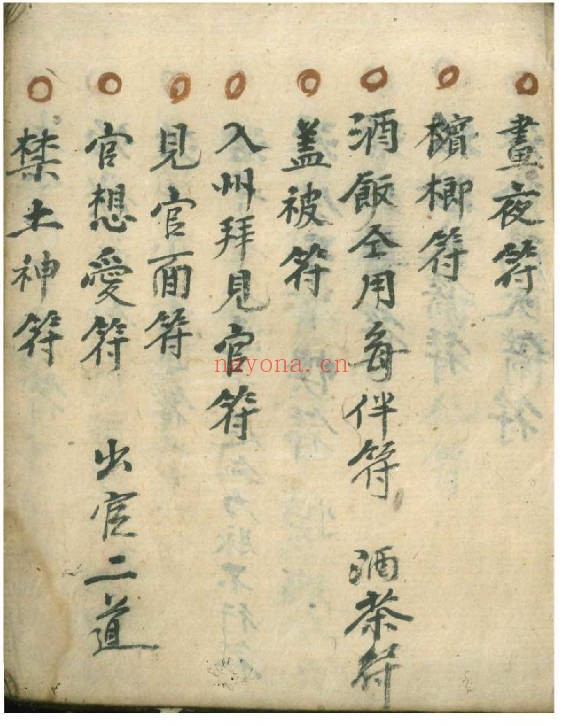 晝夜符
檳榔符
酒飯仝用每伴符 酒茶符
盖被符
入州拜見官符
見官面符
官想愛符 出官二道
禁土神符
nayona.cn